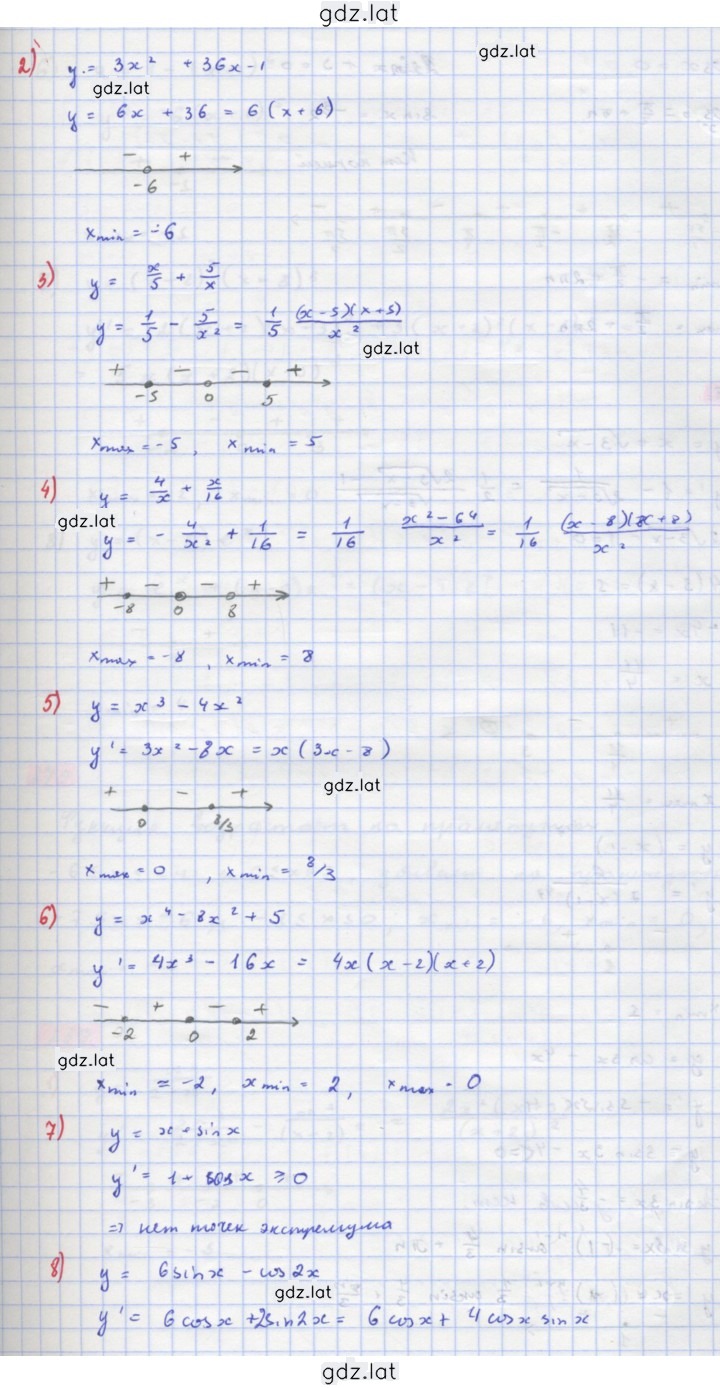 gdz.lat
2) y = 3x² + 36x - 1
gdz.lat
gdz.lat
y = 6x + 36 = 6 (x + 6)
- +
-6
x min = -6
3) y = x/5 + 5/x
y = 1/5 - 5/x² = 1/5 (x-5)(x+5)/x²
gdz.lat
+ - - +
-5 0 5
x max = -5, x min = 5
4) y = 4/x + x/16
gdz.lat
y = - 4/x² + 1/16 = 1/16 x²-64/x² = 1/16 (x-8)(x+8)/x²
+ - - +
-8 0 8
x max = -8, x min = 8
5) y = x³ - 4x²
y' = 3x² - 8x = x (3x - 8)
gdz.lat
+ - +
0 8/3
x max = 0, x min = 8/3
6) y = x⁴ - 8x² + 5
y' = 4x³ - 16x = 4x (x-2)(x+2)
- + - +
-2 0 2
gdz.lat
x min = -2, x min = 2, x max = 0
7) y = x + sin x
y' = 1 + cos x ≥ 0
=> нет точек экстремума
8) y = 6 sin x - cos 2x
gdz.lat
y' = 6 cos x + 2 sin 2x = 6 cos x + 4 cos x sin x
gdz.lat